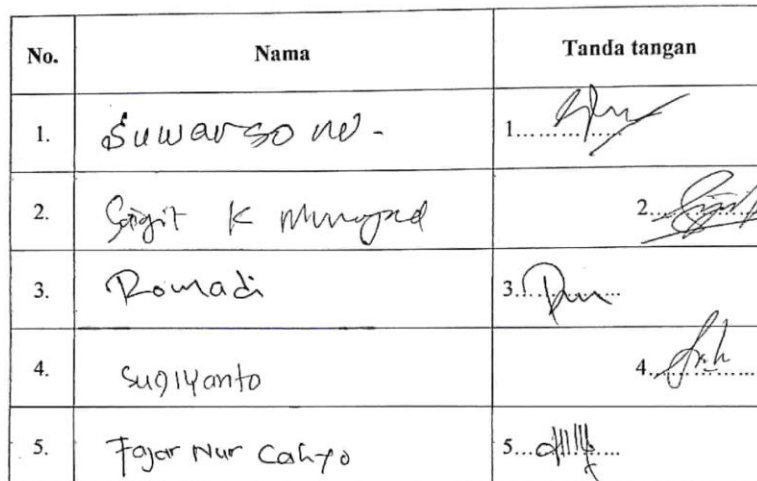 No. Nama Tanda tangan
1. Suwarsono - 1..............
2. Sigit K 2..............
3. Romadi 3..............
4. Sugiyanto 4..............
5. Fajar Nur Cahyo 5..............